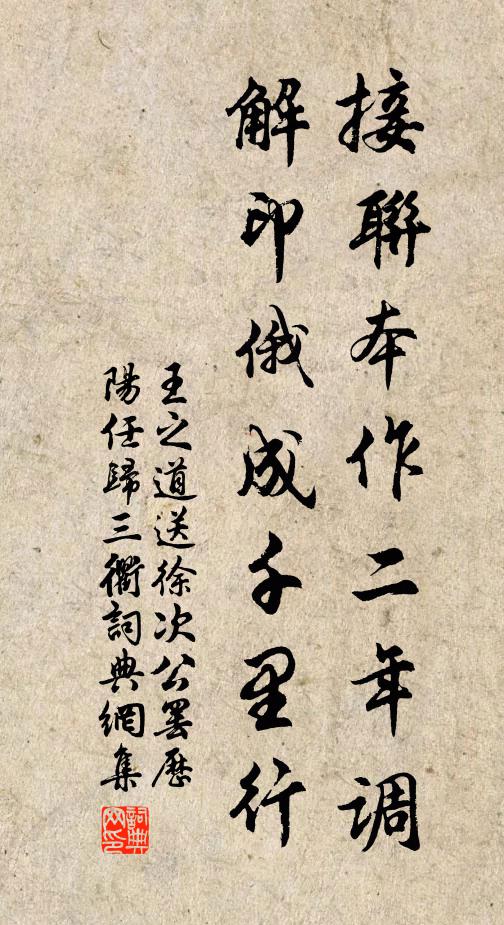 接聯本作二年調
解印俄成千里行
王之道送徐次公罢歷
陽任歸三衢詞典網集
詞典网印